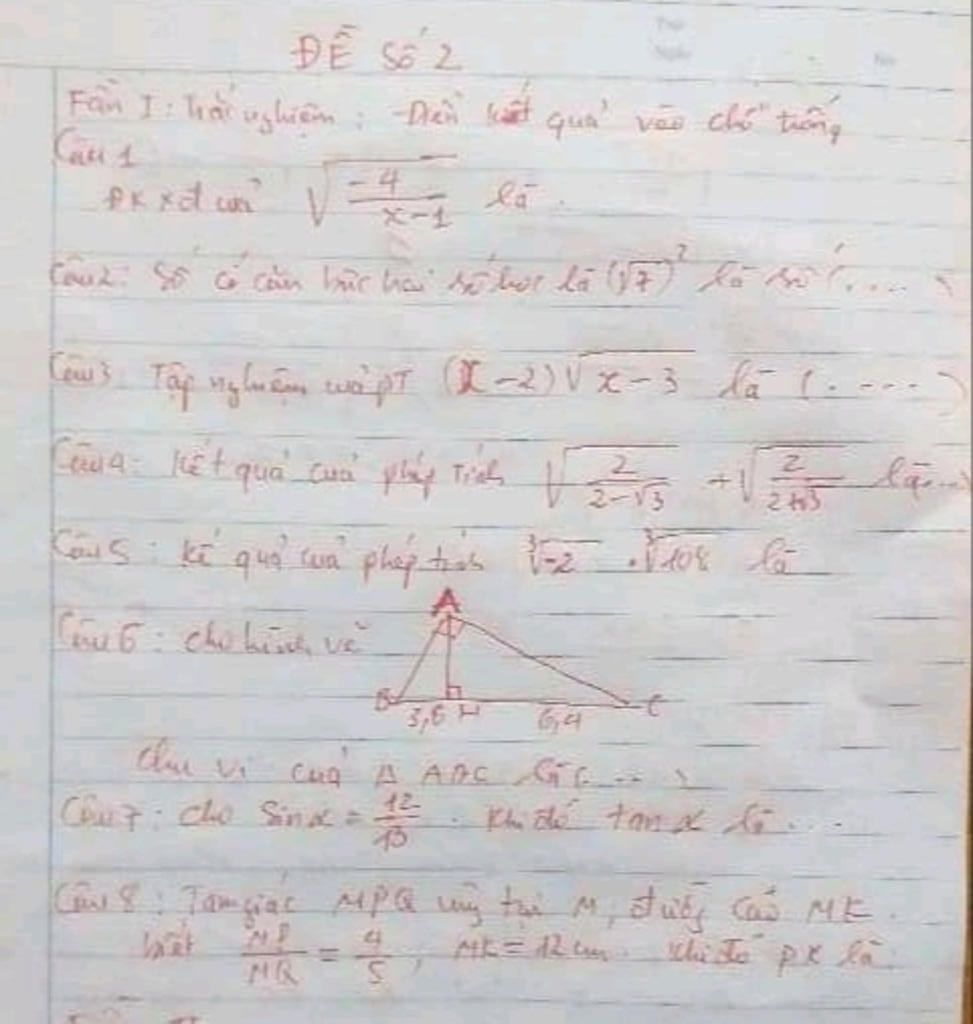 ĐỀ Số 2
Fần I: Trắc nghiệm: Điền kết quả vào chỗ trống
Câu 1
ĐK xđ của √(-4/(x-1)) là
Câu 2: Số có căn bậc hai số học là (√7)² là số (....)
Câu 3: Tập nghiệm của PT (x-2)√(x-3) là (....)
Câu 4: Kết quả của phép tính √(2/(2-√3)) + √(2/(2+√3)) là...
Câu 5: Kế quả của phép tính ∛-2 . ∛108 là
Câu 6: Cho hình vẽ
A
B 3,6 H 6,4 C
Chu vi của Δ ABC là (...)
Câu 7: Cho sin α = 12/13 . Khi đó tan α là...
Câu 8: Tam giác MPQ vuông tại M, đường cao MK.
biết MP/MQ = 4/5, MK = 12 cm. Khi đó PK là